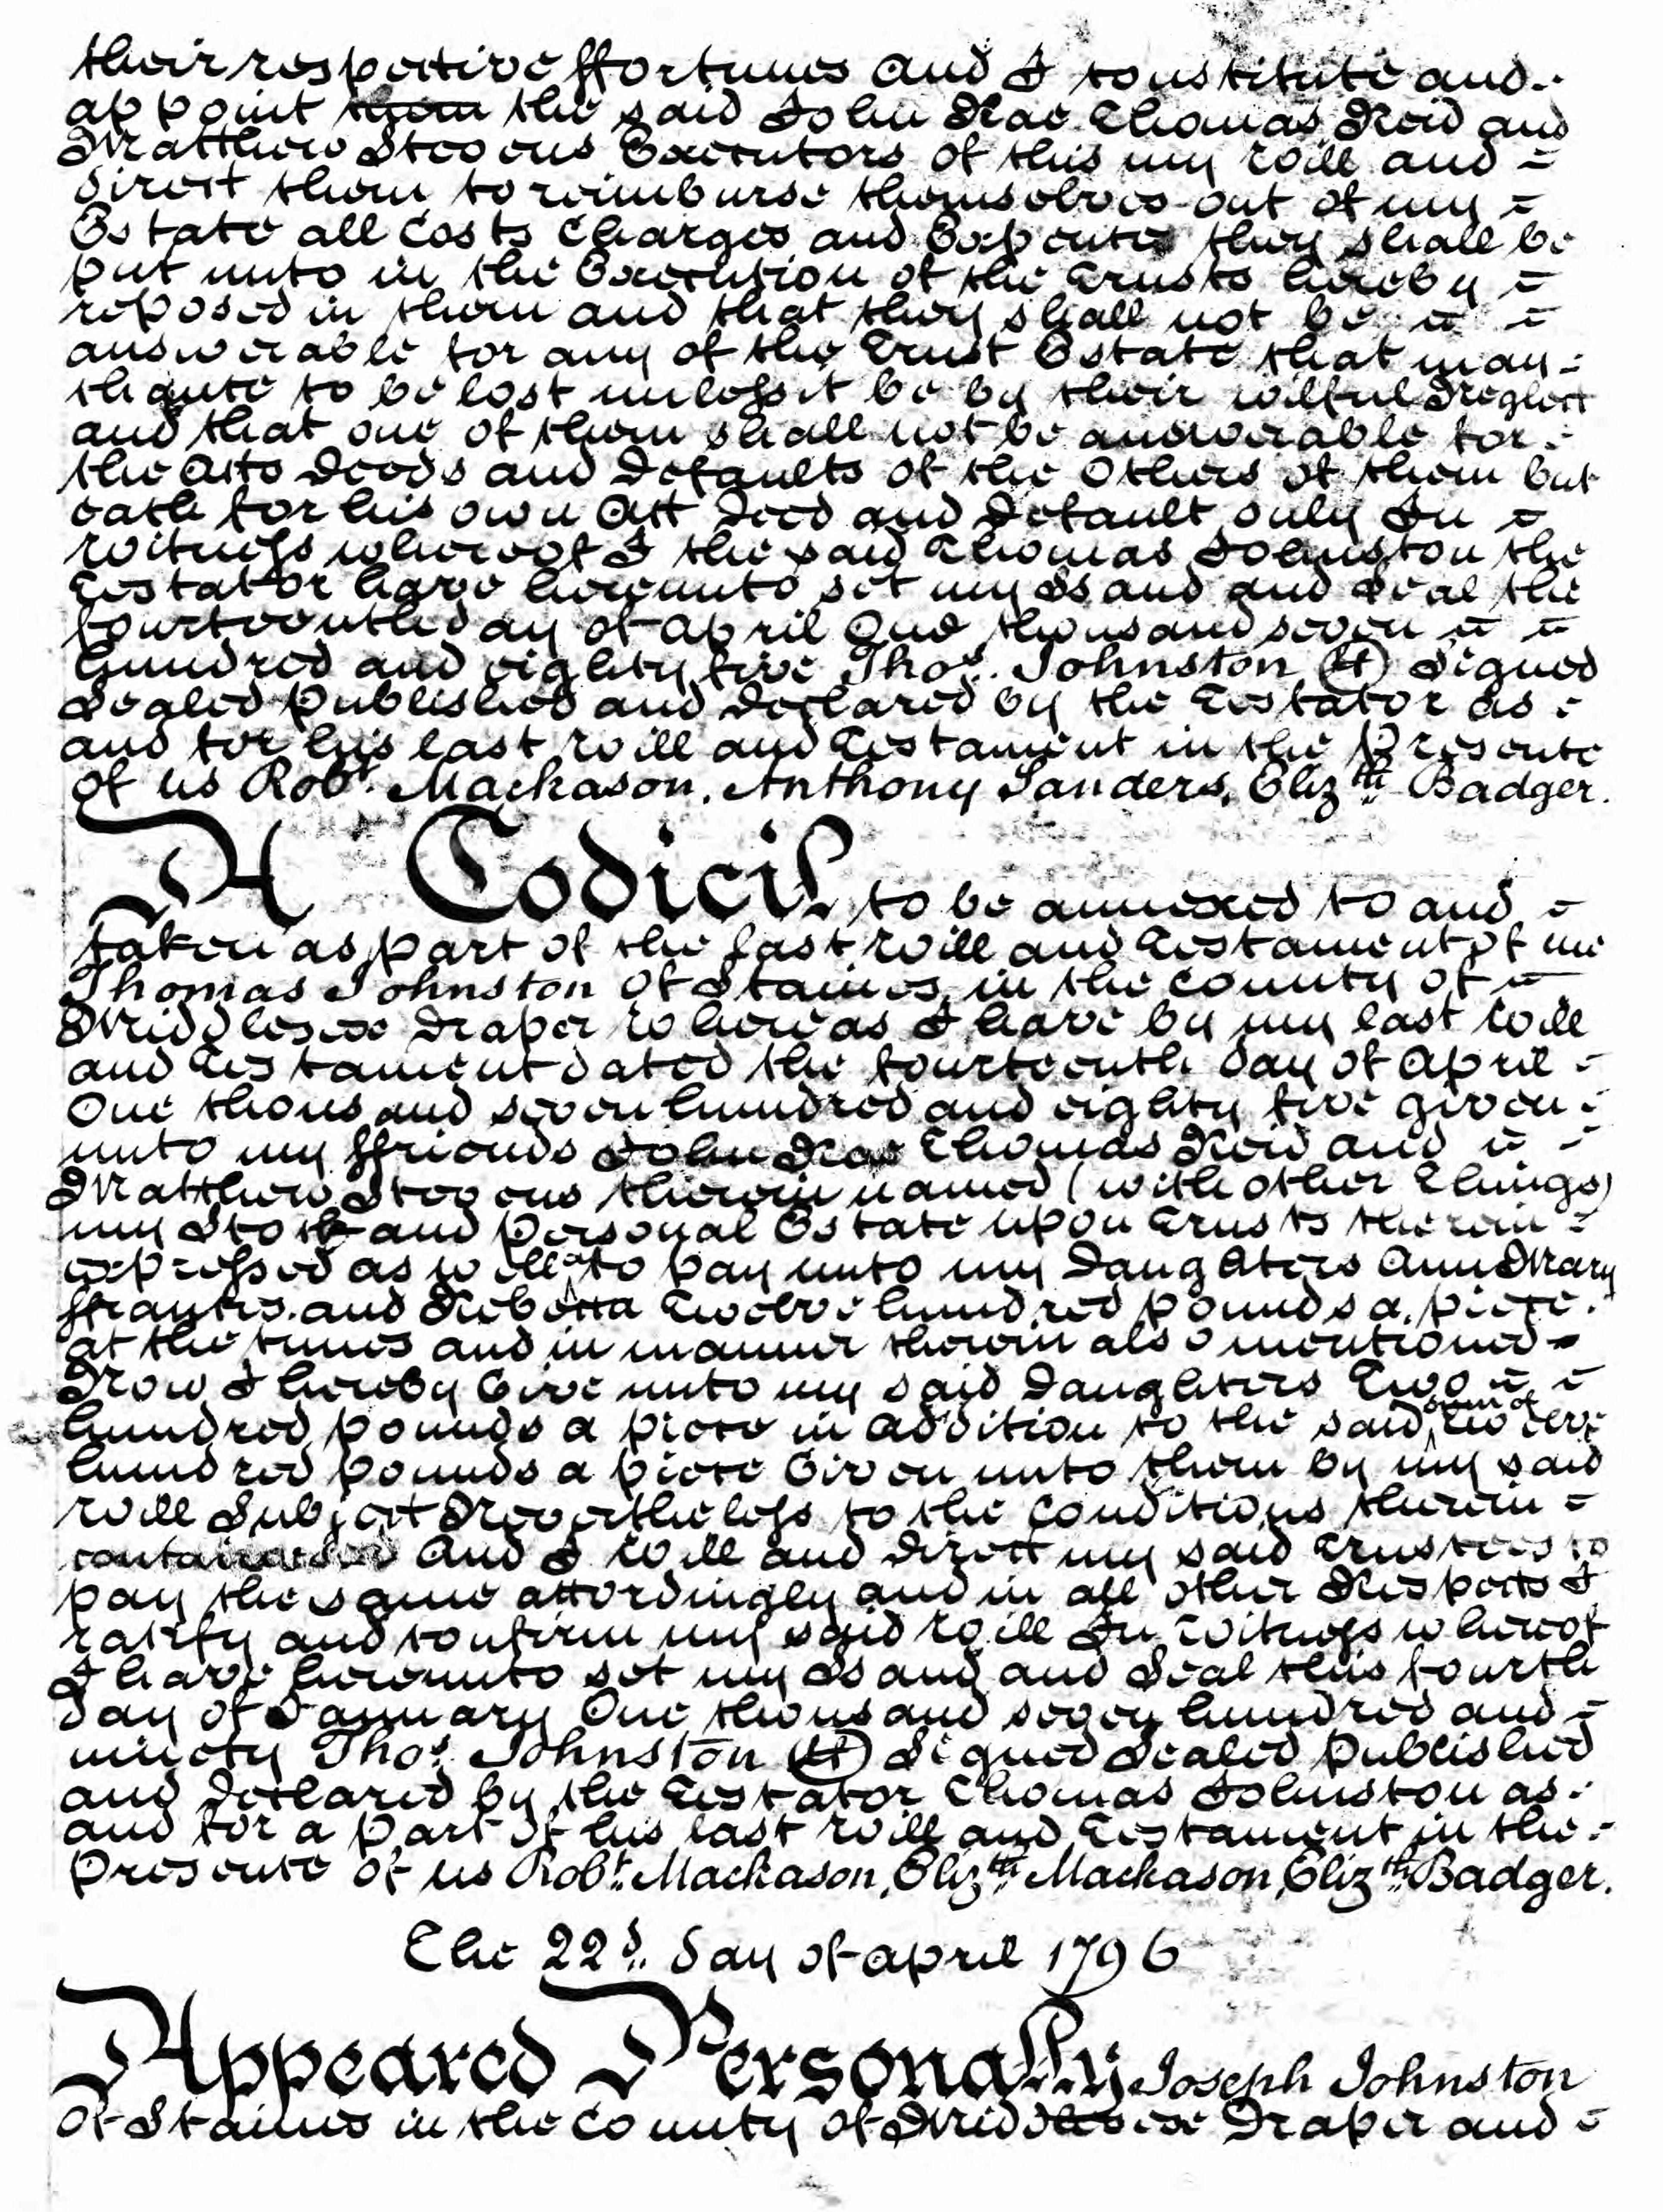 their respective ffortunes and I constitute and
appoint them the said John Rae Thomas Reid and
Matthew Steevens Executors of this my will and
direct them to reimburse themselves out of my
Estate all Costs Charges and Expences they shall be
put unto in the Execution of the Trusts hereby
reposed in them and that they shall not be
answerable for any of the Trust Estate that may
chance to be lost unless it be by their wilful Neglect
and that one of them shall not be answerable for
the Acts Deeds and Defaults of the Others of them but
each for his own Act Deed and Default only In
witness whereof I the said Thomas Johnston the
Testator have hereunto set my Hand and Seal the
fourteenth day of April One thousand seven
hundred and eighty five Thos. Johnston (LS) Signed
Sealed Published and Declared by the Testator as
and for his last will and Testament in the Presence
of us Robt. Mackason, Anthony Sanders, Elizth. Badger.
A Codicil to be annexed to and
taken as part of the last will and Testament of me
Thomas Johnston of Staines in the County of
Middlesex Draper Whereas I have by my last will
and Testament dated the fourteenth day of April
One thousand seven hundred and eighty five given
unto my ffriends John Rae Thomas Reid and
Matthew Steevens therein named (with other Things)
my Stock and personal Estate upon Trusts therein
expressed as well as to pay unto my Daughters Ann Mary
ffrances and Rebecca Twelve hundred pounds a piece
at the times and in manner therein also mentioned
Now I hereby Give unto my said Daughters Two
hundred pounds a piece in addition to the said sum of twelve
hundred pounds a piece Given unto them by my said
will Subject Nevertheless to the Conditions therein
contained And I will and direct my said Trustees to
pay the same accordingly and in all other Respects I
ratify and confirm my said will In witness whereof
I have hereunto set my Hand and Seal this fourth
day of January One thousand seven hundred and
ninety Thos. Johnston (LS) Signed Sealed Published
and Declared by the Testator Thomas Johnston as
and for a part of his last will and Testament in the
Presence of us Robt. Mackason, Elizth. Mackason, Elizth. Badger.
The 22d. day of April 1796
Appeared Personally Joseph Johnston
of Staines in the County of Middlesex Draper and